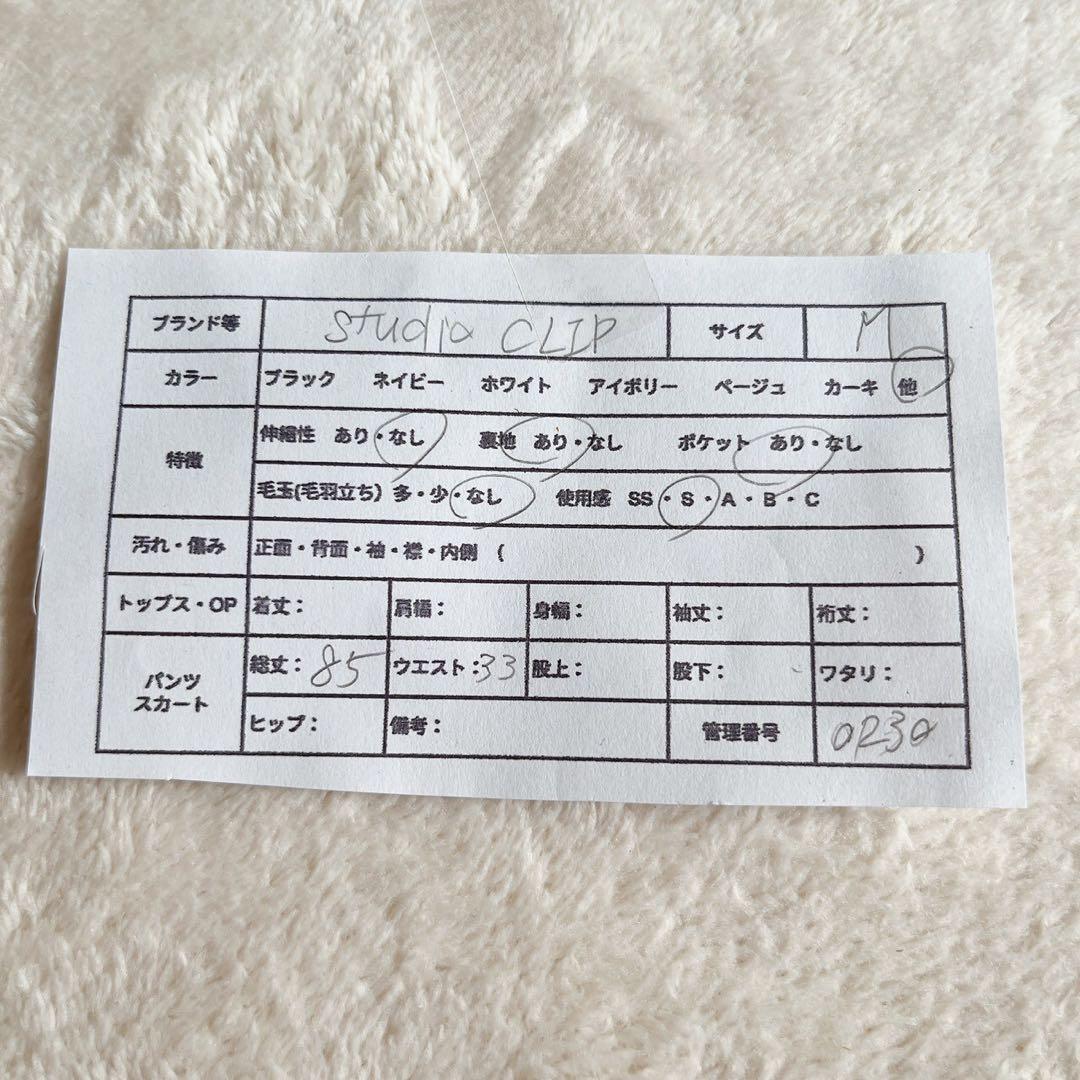 ブランド等 studio CLIP サイズ M
カラー ブラック ネイビー ホワイト アイボリー ベージュ カーキ 他
特徴 伸縮性 あり・なし 裏地 あり・なし ポケット あり・なし
毛玉(毛羽立ち) 多・少・なし 使用感 SS・S・A・B・C
汚れ・傷み 正面・背面・袖・襟・内側 ( )
トップス・OP 着丈： 肩幅： 身幅： 袖丈： 裄丈：
パンツ スカート 総丈：85 ウエスト：33 股上： 股下： ワタリ：
ヒップ： 備考： 管理番号 OR30